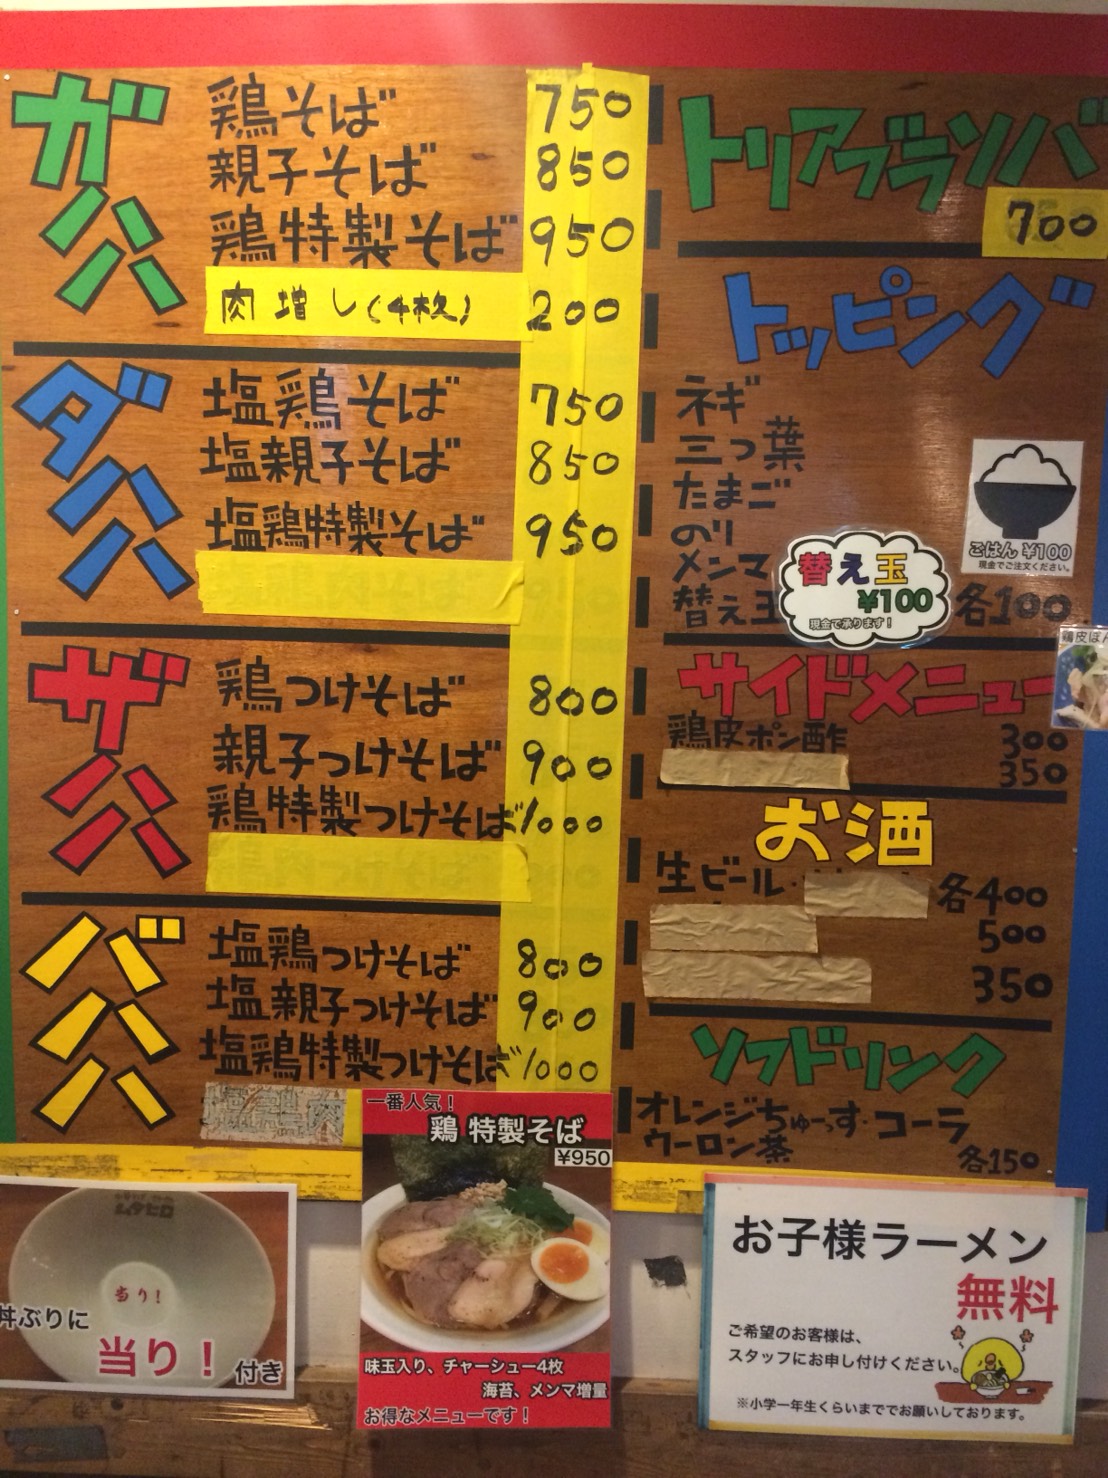 ガハハ
鶏そば 750
親子そば 850
鶏特製そば 950
肉増し(4枚) 200
ダハハ
塩鶏そば 750
塩親子そば 850
塩鶏特製そば 950
ザハハ
鶏つけそば 800
親子つけそば 900
鶏特製つけそば 1000
ババハ
塩鶏つけそば 800
塩親子つけそば 900
塩鶏特製つけそば 1000
トリアブラソバ
700
トッピング
ネギ
三つ葉
たまご
のり
メンマ
替え玉 各100
替え玉
¥100
現金で承ります!
ごはん ¥100
現金でご注文ください。
サイドメニュー
鶏皮ポン酢 300
350
鶏皮ぽん
お酒
生ビール・ 各400
500
350
ソフドリンク
オレンジちゅーっす・コーラ
ウーロン茶 各150
当り!
丼ぶりに
当り!付き
一番人気!
鶏 特製そば
¥950
味玉入り、チャーシュー4枚
海苔、メンマ増量
お得なメニューです!
お子様ラーメン
無料
ご希望のお客様は、
スタッフにお申し付けください。
※小学一年生くらいまででお願いしております。